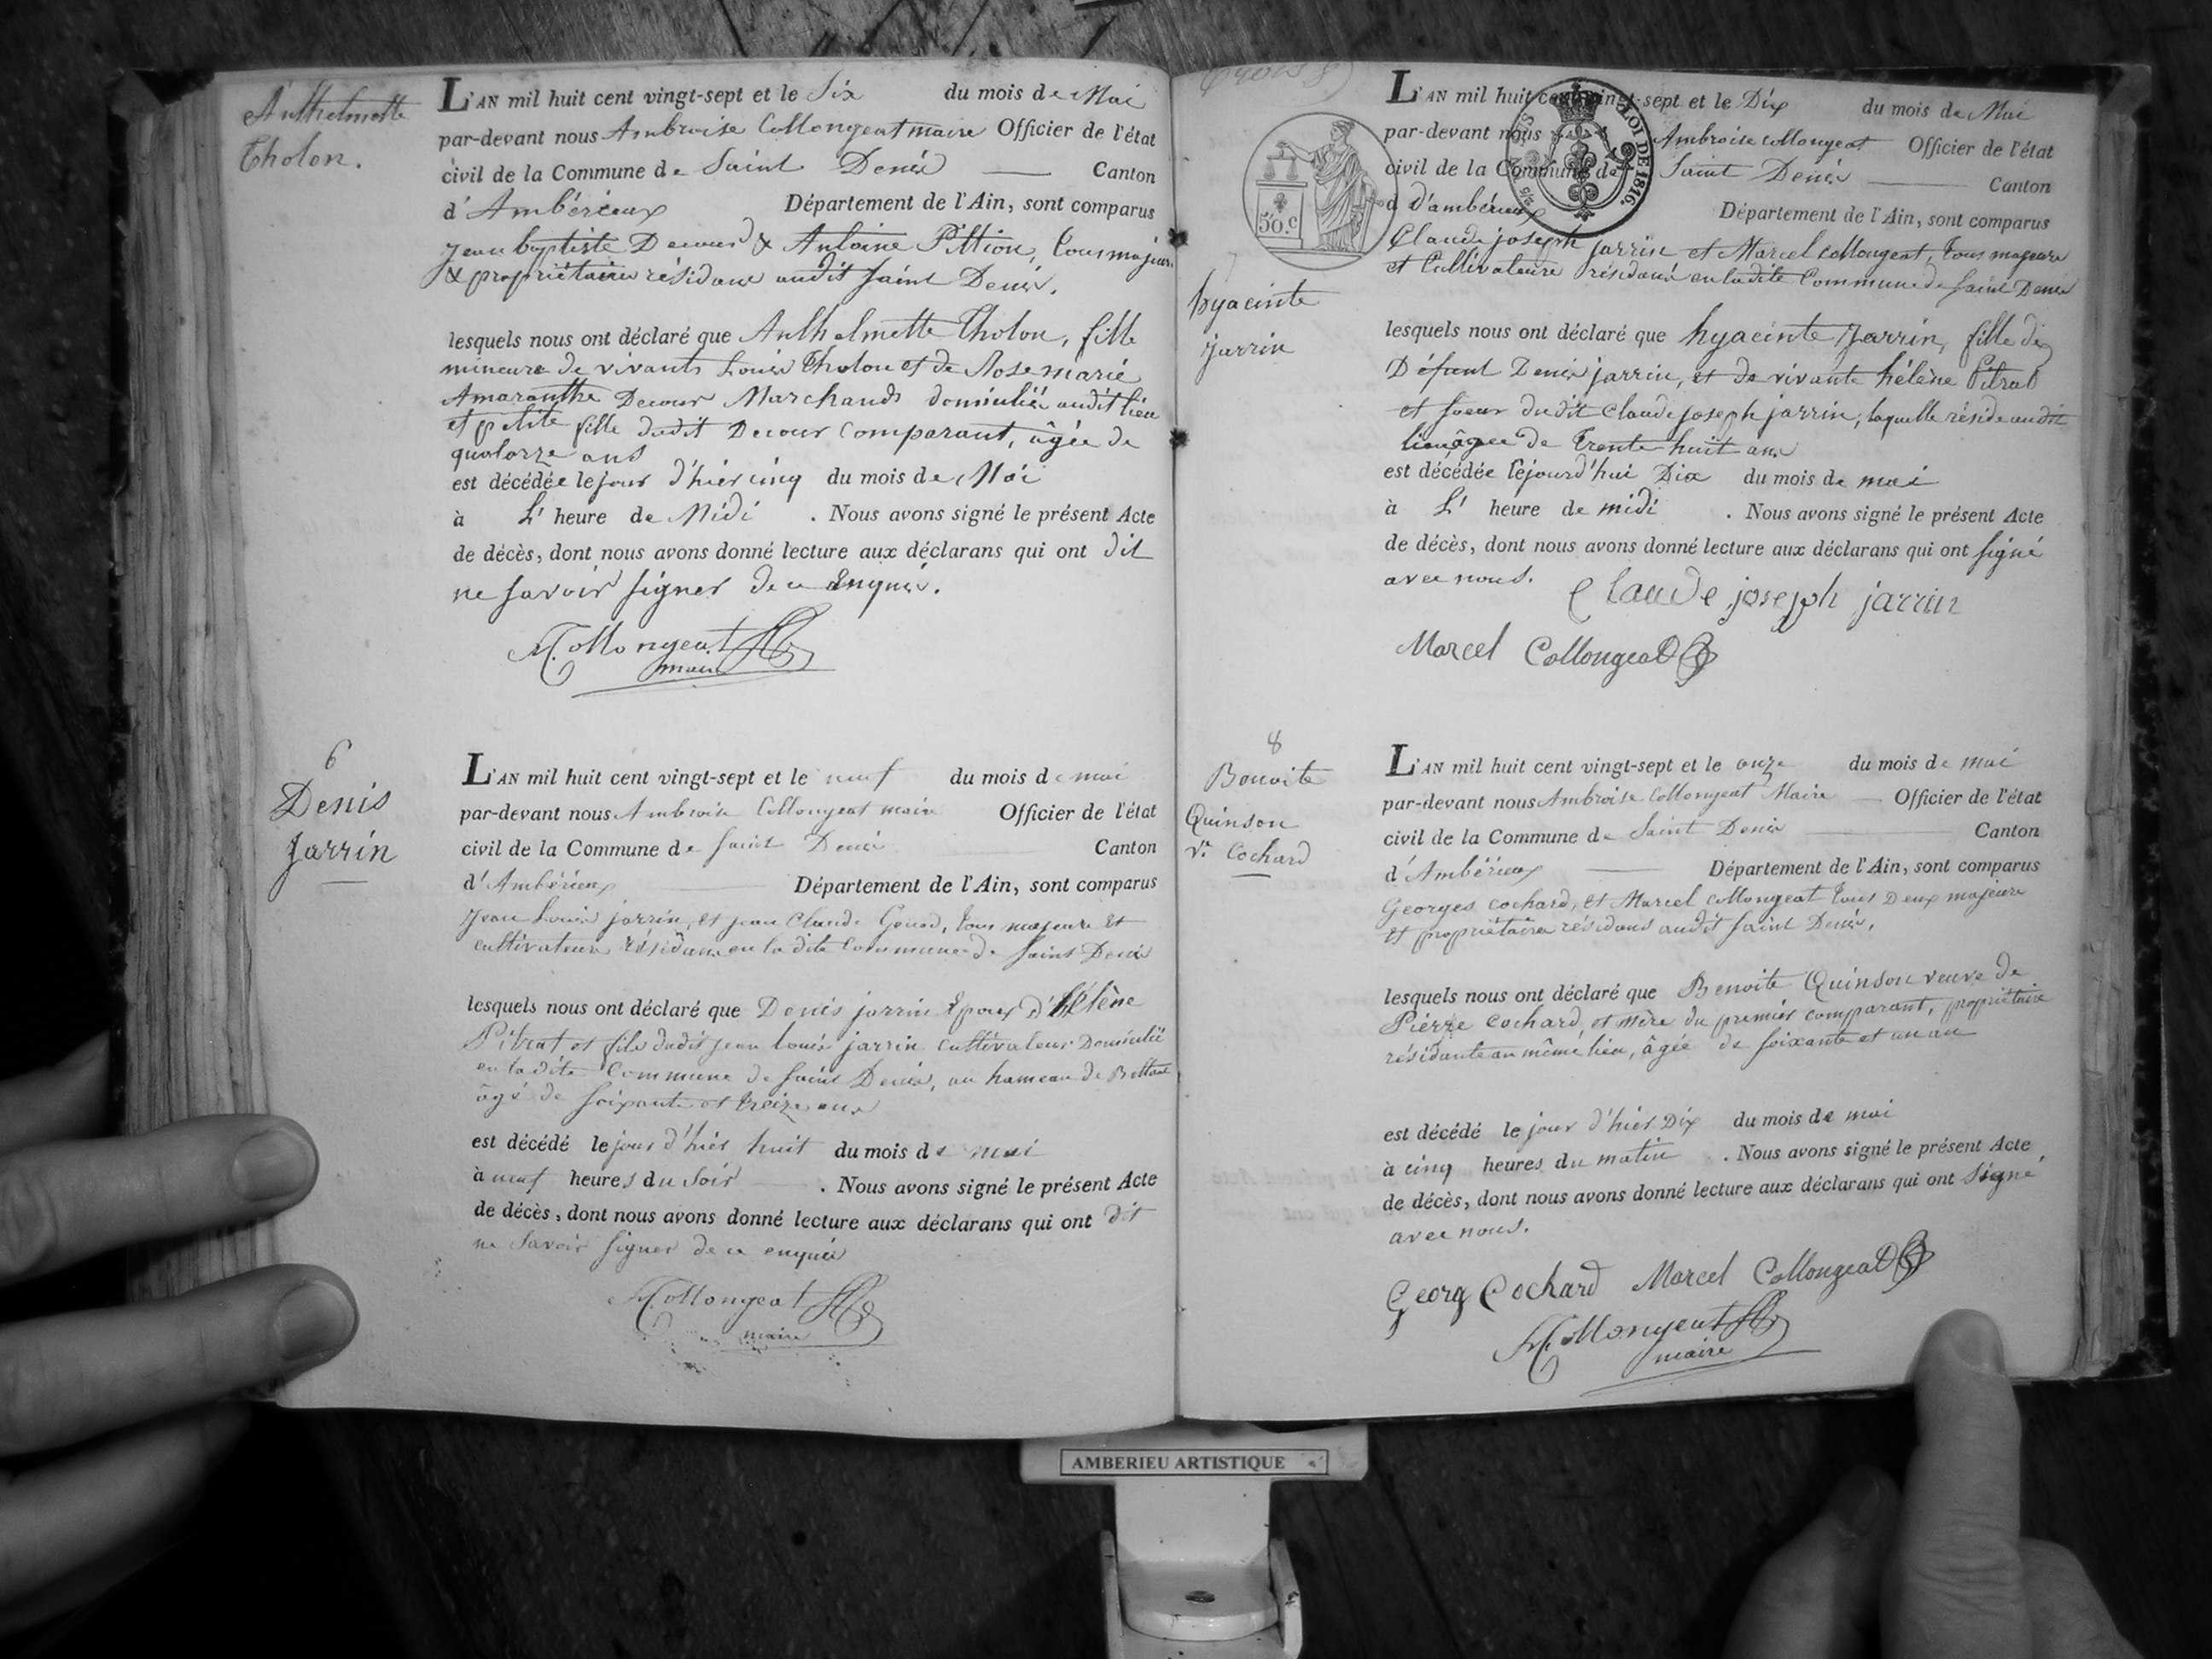 Anthelmette
Tholon.
L'AN mil huit cent vingt-sept et le Six du mois de Mai
par-devant nous Ambroise Collongeat maire Officier de l'état
civil de la Commune de Saint Denis Canton
d'Ambérieux Département de l'Ain, sont comparus
Jean baptiste Decour & Antoine Pittion, tous majeurs
& propriétaires résidans audit Saint Denis.
lesquels nous ont déclaré que Anthelmette Tholon, fille
mineure de vivants Louis Tholon et de Rose marie
Amaranthe Decour Marchands domiciliés audit lieu
et petite fille dudit Decour Comparant, âgée de
quatorze ans
est décédée le jour d'hier cinq du mois de Mai
à L' heure de Midi . Nous avons signé le présent Acte
de décès, dont nous avons donné lecture aux déclarans qui ont dit
ne savoir signer de ce enquis.
A. Collongeat
maire
6
Denis
Jarrin
L'AN mil huit cent vingt-sept et le neuf du mois de mai
par-devant nous Ambroise Collongeat maire Officier de l'état
civil de la Commune de Saint Denis Canton
d'Ambérieux Département de l'Ain, sont comparus
Jean Louis jarrin, et jean Claude Goued, tous majeurs et
cultivateurs résidans en la dite Commune de Saint Denis
lesquels nous ont déclaré que Denis jarrin Epoux d'hélène
Pitrat et fils dudit jean louis jarrin cultivateur Domicilié
en la dite Commune de Saint Denis, au hameau de Bettant
âgé de soixante et treize ans
est décédé le jour d'hier huit du mois de mai
à neuf heures du soir . Nous avons signé le présent Acte
de décès, dont nous avons donné lecture aux déclarans qui ont dit
ne savoir signer de ce enquis
A. Collongeat
maire
50.c
LOI DE 1816.
hyacinte
jarrin
L'AN mil huit cent vingt-sept et le Dix du mois de Mai
par-devant nous Ambroise Collongeat Officier de l'état
civil de la Commune de Saint Denis Canton
d D'ambérieux Département de l'Ain, sont comparus
Claude joseph jarrin et Marcel Collongeat, tous majeurs
et Cultivateurs résidans en ladite Commune de Saint Denis
lesquels nous ont déclaré que hyacinte Jarrin, fille de
Défunt Denis jarrin, et de vivante hélène Pitrat
et soeur dudit Claude joseph jarrin, laquelle réside audit
lieu âgée de Trente huit ans
est décédée cejourd'hui Dix du mois de mai
à L' heure de midi . Nous avons signé le présent Acte
de décès, dont nous avons donné lecture aux déclarans qui ont signé
avec nous.
Claude joseph jarrin
Marcel Collongeat
8
Benoite
Quinson
Ve. Cochard
L'AN mil huit cent vingt-sept et le onze du mois de mai
par-devant nous Ambroise Collongeat Maire Officier de l'état
civil de la Commune de Saint Denis Canton
d'Ambérieux Département de l'Ain, sont comparus
Georges cochard, et Marcel collongeat tous Deux majeurs
et propriétaires résidans audit Saint Denis.
lesquels nous ont déclaré que Benoite Quinson veuve de
Pierre cochard, et mère du premier comparant, propriétaire
résidante au même lieu, âgée de soixante et un an
est décédé le jour d'hier Dix du mois de mai
à cinq heures du matin . Nous avons signé le présent Acte
de décès, dont nous avons donné lecture aux déclarans qui ont signé
avec nous.
Georg Cochard Marcel Collongeat
A. Collongeat
maire
AMBERIEU ARTISTIQUE